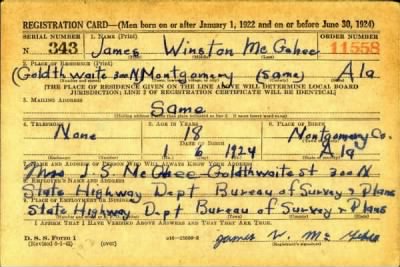 REGISTRATION CARD—(Men born on or after January 1, 1922 and on or before June 30, 1924)
SERIAL NUMBER 1. NAME (Print) ORDER NUMBER
N 343 James Winston McGehee 11558
2. PLACE OF RESIDENCE (Print)
(Goldthwaite 300 N) Montgomery (same) Ala
[THE PLACE OF RESIDENCE GIVEN ON THE LINE ABOVE WILL DETERMINE LOCAL BOARD
JURISDICTION; LINE 2 OF REGISTRATION CERTIFICATE WILL BE IDENTICAL]
3. MAILING ADDRESS
Same
4. TELEPHONE 5. AGE IN YEARS 6. PLACE OF BIRTH
None 18 Montgomery Co.
DATE OF BIRTH
1 6 1924 Ala
7. NAME AND ADDRESS OF PERSON WHO WILL ALWAYS KNOW YOUR ADDRESS
Mrs. J. S. McGehee Goldthwaite St 300 N
8. EMPLOYER'S NAME AND ADDRESS
State Highway Dept Bureau of Survey & Plans
State Highway Dept Bureau of Survey & Plans
I AFFIRM THAT I HAVE VERIFIED ABOVE ANSWERS AND THAT THEY ARE TRUE.
D. S. S. Form 1
(over)
James W. McGehee